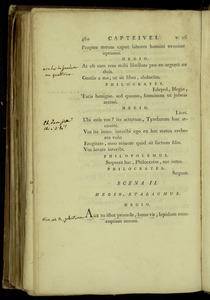 480 CAPTEIVEI. V. iS
Propter meum caput labores homini evenisse
optumo.
HEGIO.
At ob eam rem mihi libellam pro eo argenti ne
duis.
Gratiis a me, ut sit liber, abducito.
PHILOCRATES.
Edepol, Hegio,
Facis benigne. sed quaeso, hominem ut jubeas
arcessi.
HEGIO.
Licet.
Ubi estis vos? ite actutum, Tyndarum huc
Vos ite intro. interibi ego ex hac statua verberea volo
Erogitare, meo minore quid sit factum filio.
Vos lavate interibi.
PHILOPOLEMUS.
Sequere hac, Philocrates, me intro.
PHILOCRATES.
Sequor.
SCENA II.
HEGIO, STALAGMUS.
HEGIO.
Age tu illuc procede, bone vir, lepidum mancupium meum.